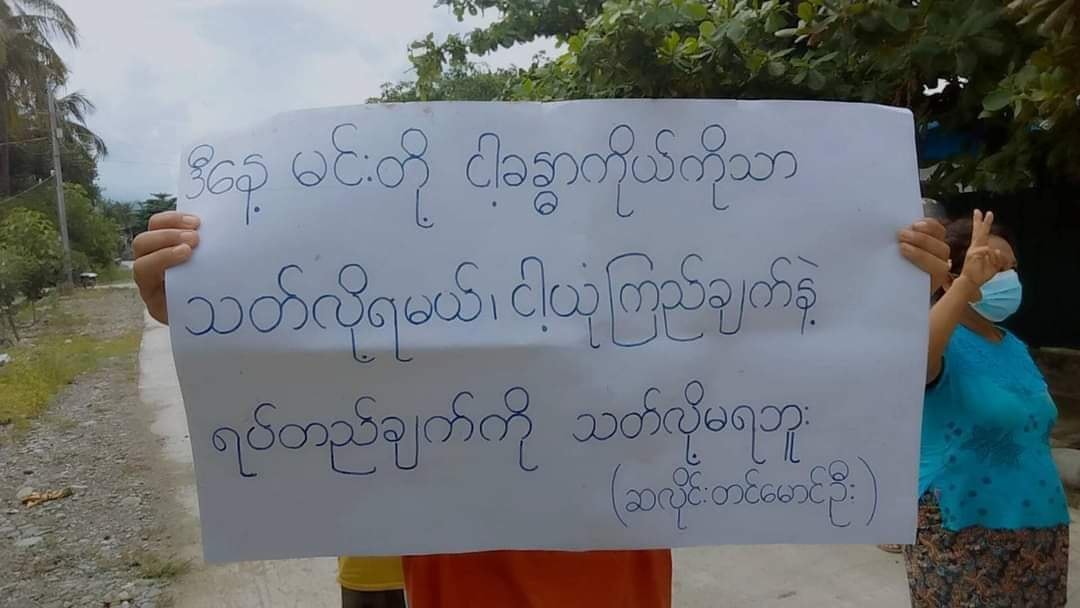 ဒီနေ့ မင်းတို့ ငါ့ခန္ဓာကိုယ်ကိုသာ
သတ်လို့ရမယ်၊ ငါ့ယုံကြည်ချက်နဲ့
ရပ်တည်ချက်ကို သတ်လို့မရဘူး
(ဆလိုင်းတင်မောင်ဦး)